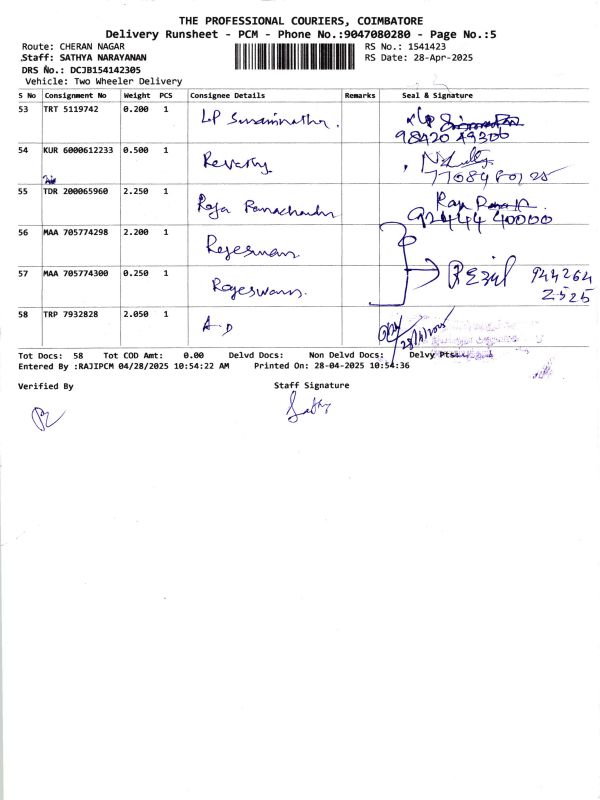 THE PROFESSIONAL COURIERS, COIMBATORE
Delivery Runsheet - PCM - Phone No.:9047080280 - Page No.:5
Route: CHERAN NAGAR RS No.: 1541423
Staff: SATHYA NARAYANAN RS Date: 28-Apr-2025
DRS No.: DCJB154142305
Vehicle: Two Wheeler Delivery
S No Consignment No Weight PCS Consignee Details Remarks Seal & Signature
53 TRT 5119742 0.200 1 LP Swaminathan. LP
98420 49300
54 KUR 6000612233 0.500 1 Revathy
55 TDR 200065960 2.250 1 Raja Ramachandran Raja
92444 40000
56 MAA 705774298 2.200 1 Rajeswari
57 MAA 705774300 0.250 1 Rajeswari 944264
2525
58 TRP 7932828 2.050 1 A.D 28/4/2025
Tot Docs: 58 Tot COD Amt: 0.00 Delvd Docs: Non Delvd Docs: Delvy Pts:
Entered By :RAJIPCM 04/28/2025 10:54:22 AM Printed On: 28-04-2025 10:54:36
Verified By Staff Signature